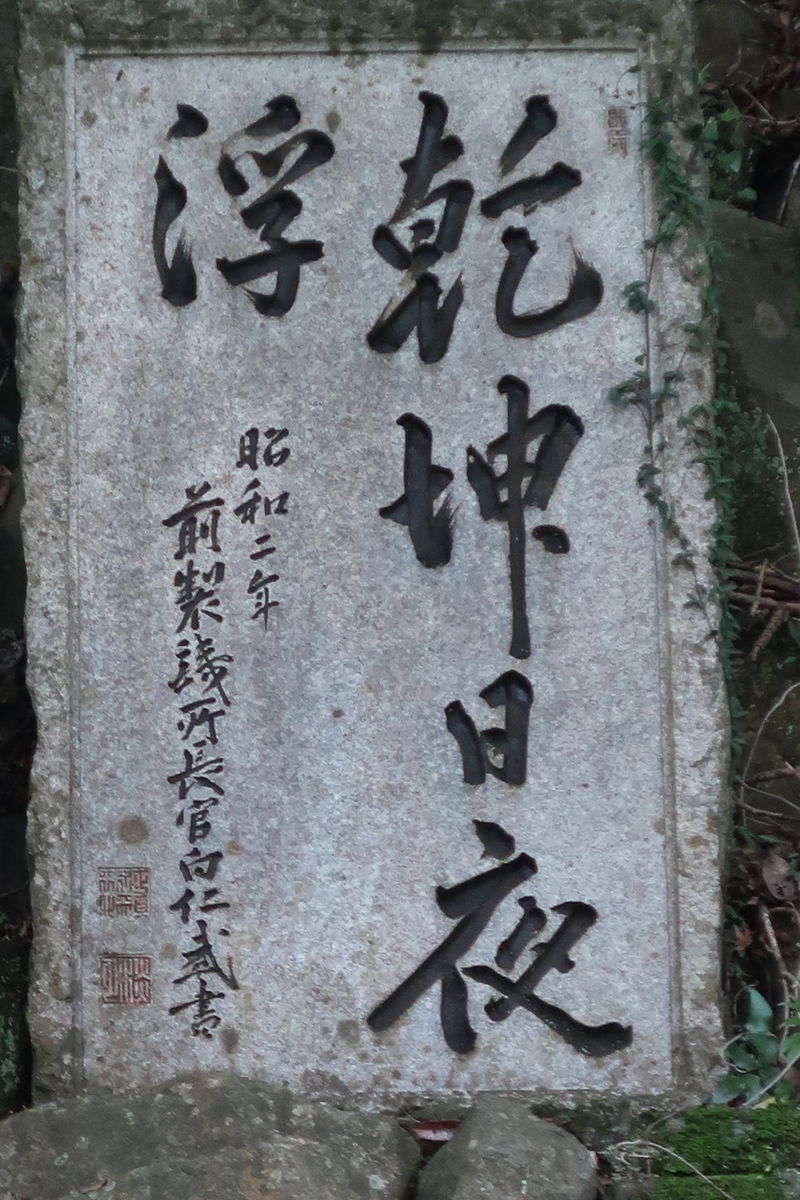 乾坤日夜
浮
昭和二年
前製鐵所長官白仁武書